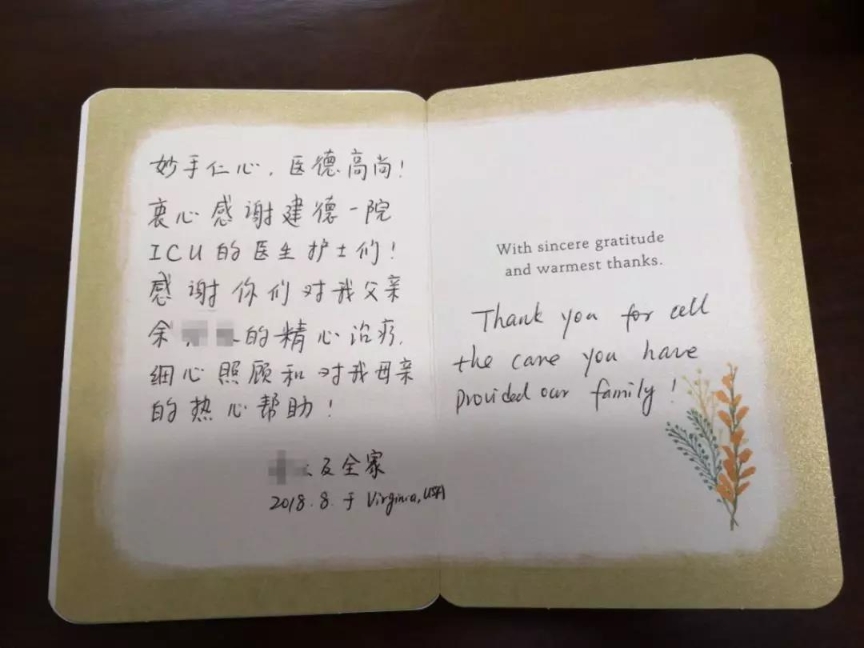 妙手仁心，医德高尚！
衷心感谢建德一院
ICU的医生护士们！
感谢你们对我父亲
余的精心治疗，
细心照顾和对我母亲
的热心帮助！
及全家
2018.8.于 Virginia, USA
With sincere gratitude
and warmest thanks.
Thank you for all
the care you have
provided our family!